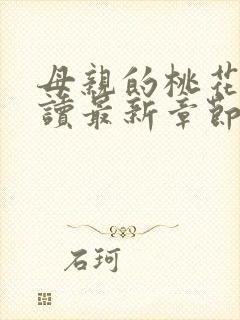 母親的桃花
讀最新章節
石珂